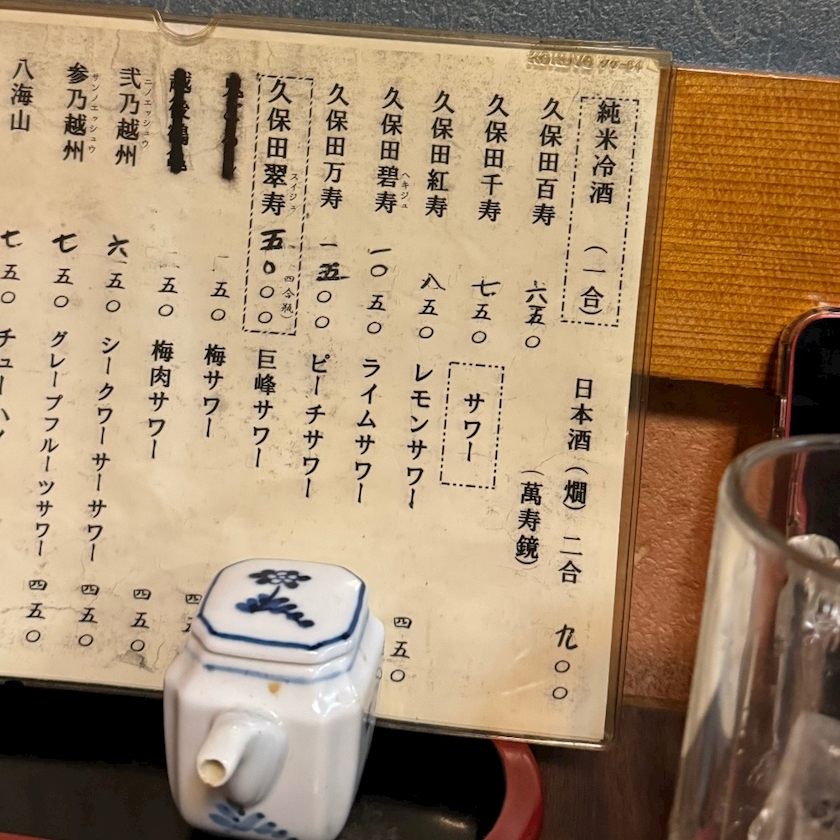 純米冷酒 （一合）
久保田百寿 六五〇
久保田千寿 七五〇
久保田紅寿 八五〇
久保田碧寿 ヘキジュ 一〇五〇
久保田万寿 一五〇〇
久保田翠寿 スイジュ 五〇〇〇 （四合瓶）
五〇
五〇
弐乃越州 ニノエッシュウ 六五〇
参乃越州 サンノエッシュウ 七五〇
八海山 七五〇
日本酒（燗） 二合 九〇〇
（萬寿鏡）
サワー
レモンサワー 四五〇
ライムサワー
ピーチサワー
巨峰サワー
梅サワー
梅肉サワー 四五〇
シークワーサーサワー 四五〇
グレープフルーツサワー 四五〇